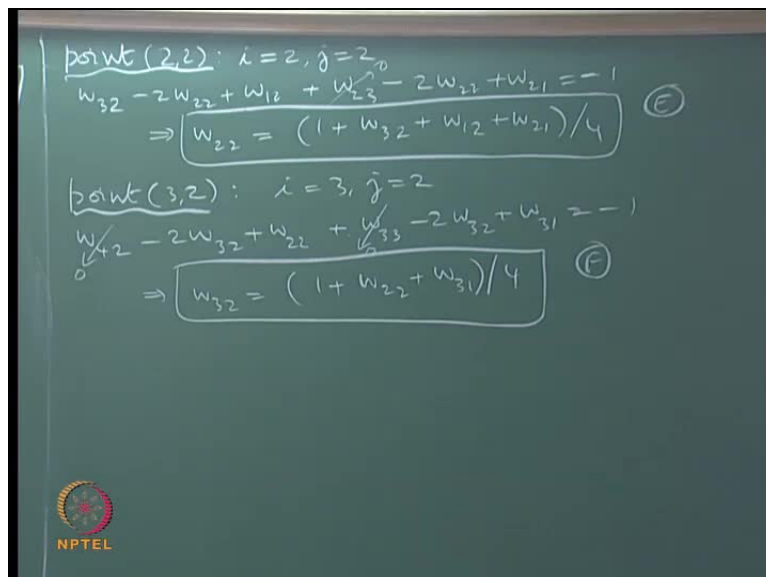 point (2,2) : i = 2, j = 2
w₃₂ - 2w₂₂ + w₁₂ + w₂₃ 0 - 2w₂₂ + w₂₁ = -1
⇒ w₂₂ = (1 + w₃₂ + w₁₂ + w₂₁)/4 E
point (3,2) : i = 3, j = 2
w₄₂ - 2w₃₂ + w₂₂ + w₃₃ - 2w₃₂ + w₃₁ = -1
0 0
⇒ w₃₂ = (1 + w₂₂ + w₃₁)/4 F
NPTEL